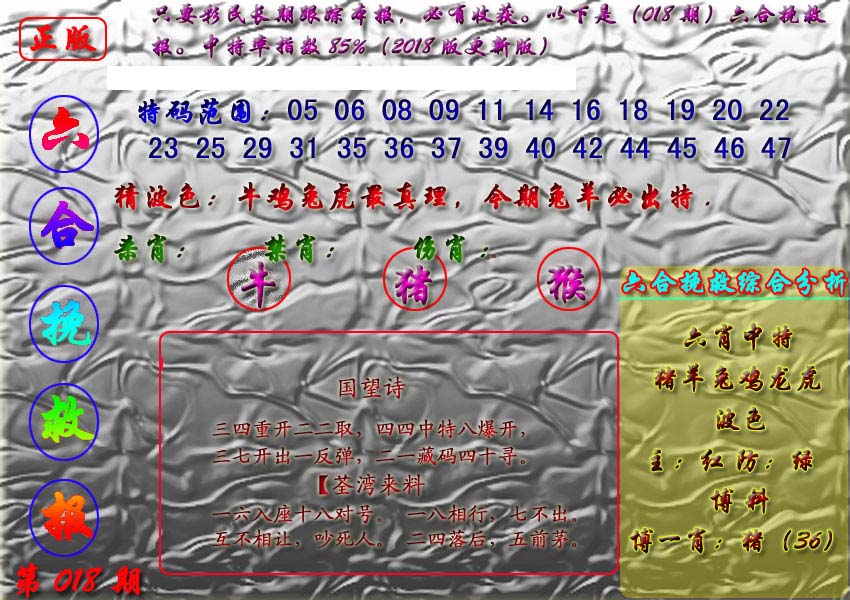 正版
只要彩民长期跟踪本报，必有收获。以下是（018期）六合挽救
报。中特率指数85%（2018版更新版）
六合挽救报
第018期
特码范围：05 06 08 09 11 14 16 18 19 20 22
23 25 29 31 35 36 37 39 40 42 44 45 46 47
猜波色：牛鸡兔虎最真理，今期兔羊必出特．
杀肖： 禁肖： 伤肖：。
牛 猪 猴
国望诗
三四重开二二取，四四中特八爆开，
三七开出一反弹，二一藏码四十寻。
【荃湾来料
一六入座十八对号。 一八相行，七不出。
互不相让，吵死人。 二四落后，五前茅。
六合挽救综合分析
六肖中特
猪羊兔鸡龙虎
波色
主：红防：绿
博料
博一肖：猪（36）